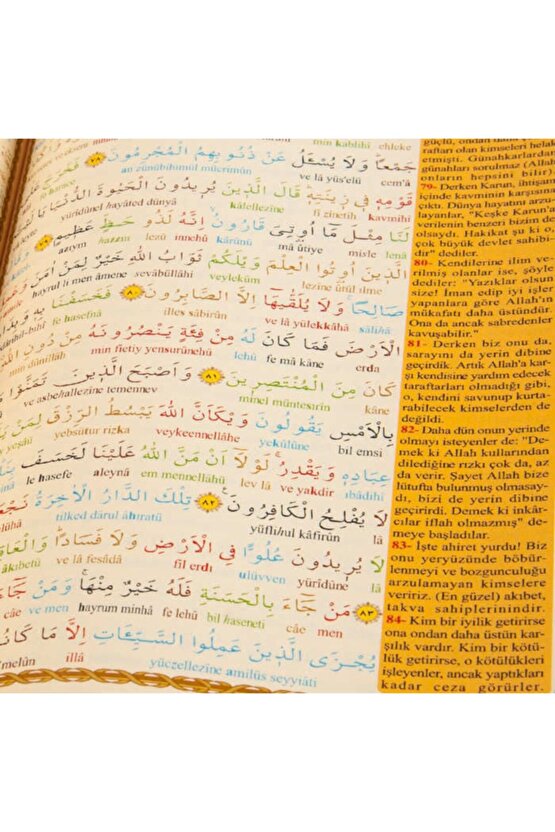 min kablihî ehleke
جَمْعًا وَلَا يُسْـَٔلُ عَنْ ذُنُوبِهِمُ الْمُجْرِمُونَ ﴿٧٨﴾
cem'â ve lâ yüs'elü an zünûbihimül mücrimûn
قَوْمِهٖ فٖى زٖينَتِهٖ قَالَ الَّذٖينَ يُرٖيدُونَ الْحَيٰوةَ الدُّنْيَا
kavmihî fî zînetih kâlellezîne yürîdûnel hayâted dünyâ
لَنَا مِثْلَ مَا اُوتِىَ قَارُونُ اِنَّهُ لَذُو حَظٍّ عَظٖيمٍ ﴿٧٩﴾
lenâ misle mâ ûtiye kârûnü innehû lezû hazzın azıym
الَّذٖينَ اُوتُوا الْعِلْمَ وَيْلَكُمْ ثَوَابُ اللّٰهِ خَيْرٌ لِمَنْ اٰمَنَ
lezîne ûtül ılme veyleküm sevâbüllâhi hayrul li men âmene
صَالِحًا وَلَا يُلَقّٰيهَا اِلَّا الصَّابِرُونَ ﴿٨٠﴾ فَخَسَفْنَا
sâlihâ ve lâ yülekkâhâ illes sâbirûn fe hasefnâ
الْاَرْضَ فَمَا كَانَ لَهُ مِنْ فِئَةٍ يَنْصُرُونَهُ مِنْ
erda fe mâ kâne lehû min fietiy yensurûnehû min dûnillâh
كَانَ مِنَ الْمُنْتَصِرٖينَ ﴿٨١﴾ وَاَصْبَحَ الَّذٖينَ تَمَنَّوْا
kâne minel müntesırîn ve asbehallezîne temennev
بِالْاَمْسِ يَقُولُونَ وَيْكَاَنَّ اللّٰهَ يَبْسُطُ الرِّزْقَ لِمَنْ
bil emsi yekûlûne veykeennellâhe yebsütur rizka
عِبَادِهٖ وَيَقْدِرُ لَوْلَا اَنْ مَنَّ اللّٰهُ عَلَيْنَا لَخَسَفَ
ıbâdihî ve yakdir lev lâ em mennellâhü aleynâ le hasefe
لَا يُفْلِحُ الْكَافِرُونَ ﴿٨٢﴾ تِلْكَ الدَّارُ الْاٰخِرَةُ
lâ yüflihul kâfirûn tilked dârul âhıratü
لَا يُرٖيدُونَ عُلُوًّا فِى الْاَرْضِ وَلَا فَسَادًا
lâ yürîdûne ulüvven fil erdı ve lâ fesâdâ
﴿٨٣﴾ مَنْ جَاءَ بِالْحَسَنَةِ فَلَهُ خَيْرٌ مِنْهَا وَمَنْ جَاءَ
men câe bil haseneti fe lehû hayrum minhâ ve men câe
يُجْزَى الَّذٖينَ عَمِلُوا السَّيِّـَٔاتِ اِلَّا مَا
yüczellezîne amilüs seyyiâti illâ
rafları olan kimseleri helak
etmişti. Günahkarlardan
günahları sorulmaz (Allah
onların hepsini bilir).
79- Derken Karun, ihtişamı
içinde kavminin karşısına
çıktı. Dünya hayatını arzu-
layanlar, "Keşke Karun'a
verilenin benzeri bizim de
olsaydı. Hakikat şu ki o,
çok büyük devlet sahibi-
dir" dediler.
80- Kendilerine ilim ve-
rilmiş olanlar ise, şöyle
dediler: "Yazıklar olsun
size! İman edip iyi işler
yapanlara göre Allah'ın
mükafatı daha üstündür.
Ona da ancak sabredenler
kavuşabilir."
81- Derken biz onu da,
sarayını da yerin dibine
geçirdik. Artık Allah'a kar-
şı kendisine yardım edecek
taraftarları olmadığı gibi,
o, kendini savunup kurta-
rabilecek kimselerden de
değildi.
82- Daha dün onun yerinde
olmayı isteyenler de: "De-
mek ki Allah kullarından
dilediğine rızkı çok da, az
da verir. Şayet Allah bize
lütufta bulunmuş olmasay-
dı, bizi de yerin dibine
geçirirdi. Demek ki inkâr-
cılar iflah olmazmış" de-
meye başladılar.
83- İşte ahiret yurdu! Biz
onu yeryüzünde böbür-
lenmeyi ve bozgunculuğu
arzulamayan kimselere
veririz. (En güzel) akıbet,
takva sahiplerinindir.
84- Kim bir iyilik getirirse
ona ondan daha üstün kar-
şılık vardır. Kim bir kötü-
lük getirirse, o kötülükleri
işleyenler, ancak yaptıkları
kadar ceza görürler.